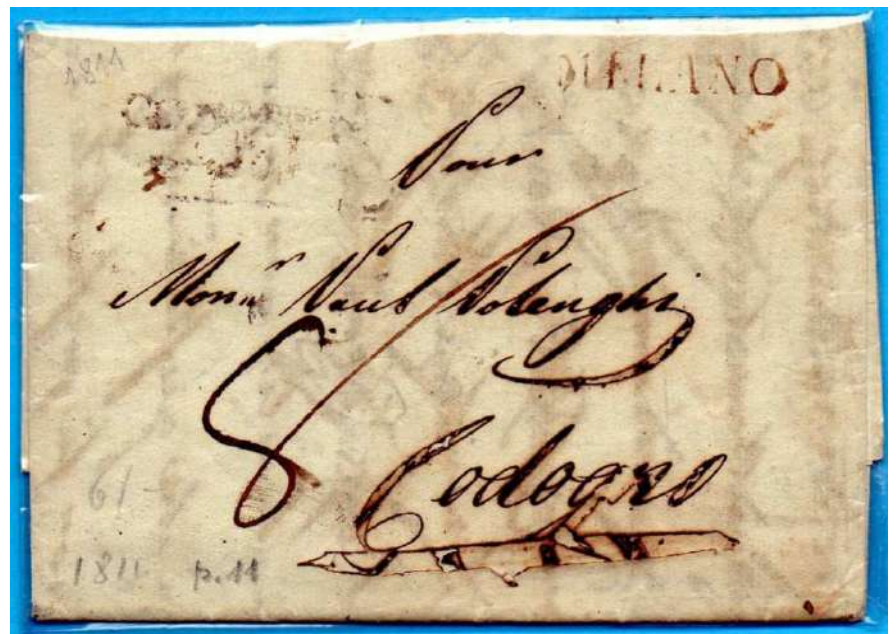 1811
MILANO
Pour
Mon.r Paul Polenghi
8
Codogno
6/-
1811 p. 11